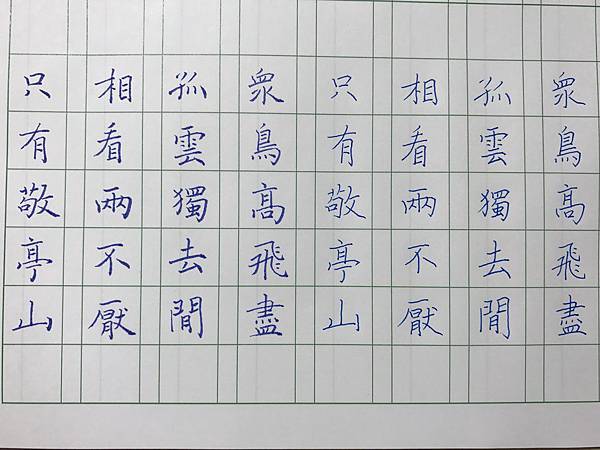 眾鳥高飛盡
孤雲獨去閒
相看兩不厭
只有敬亭山
眾鳥高飛盡
孤雲獨去閒
相看兩不厭
只有敬亭山